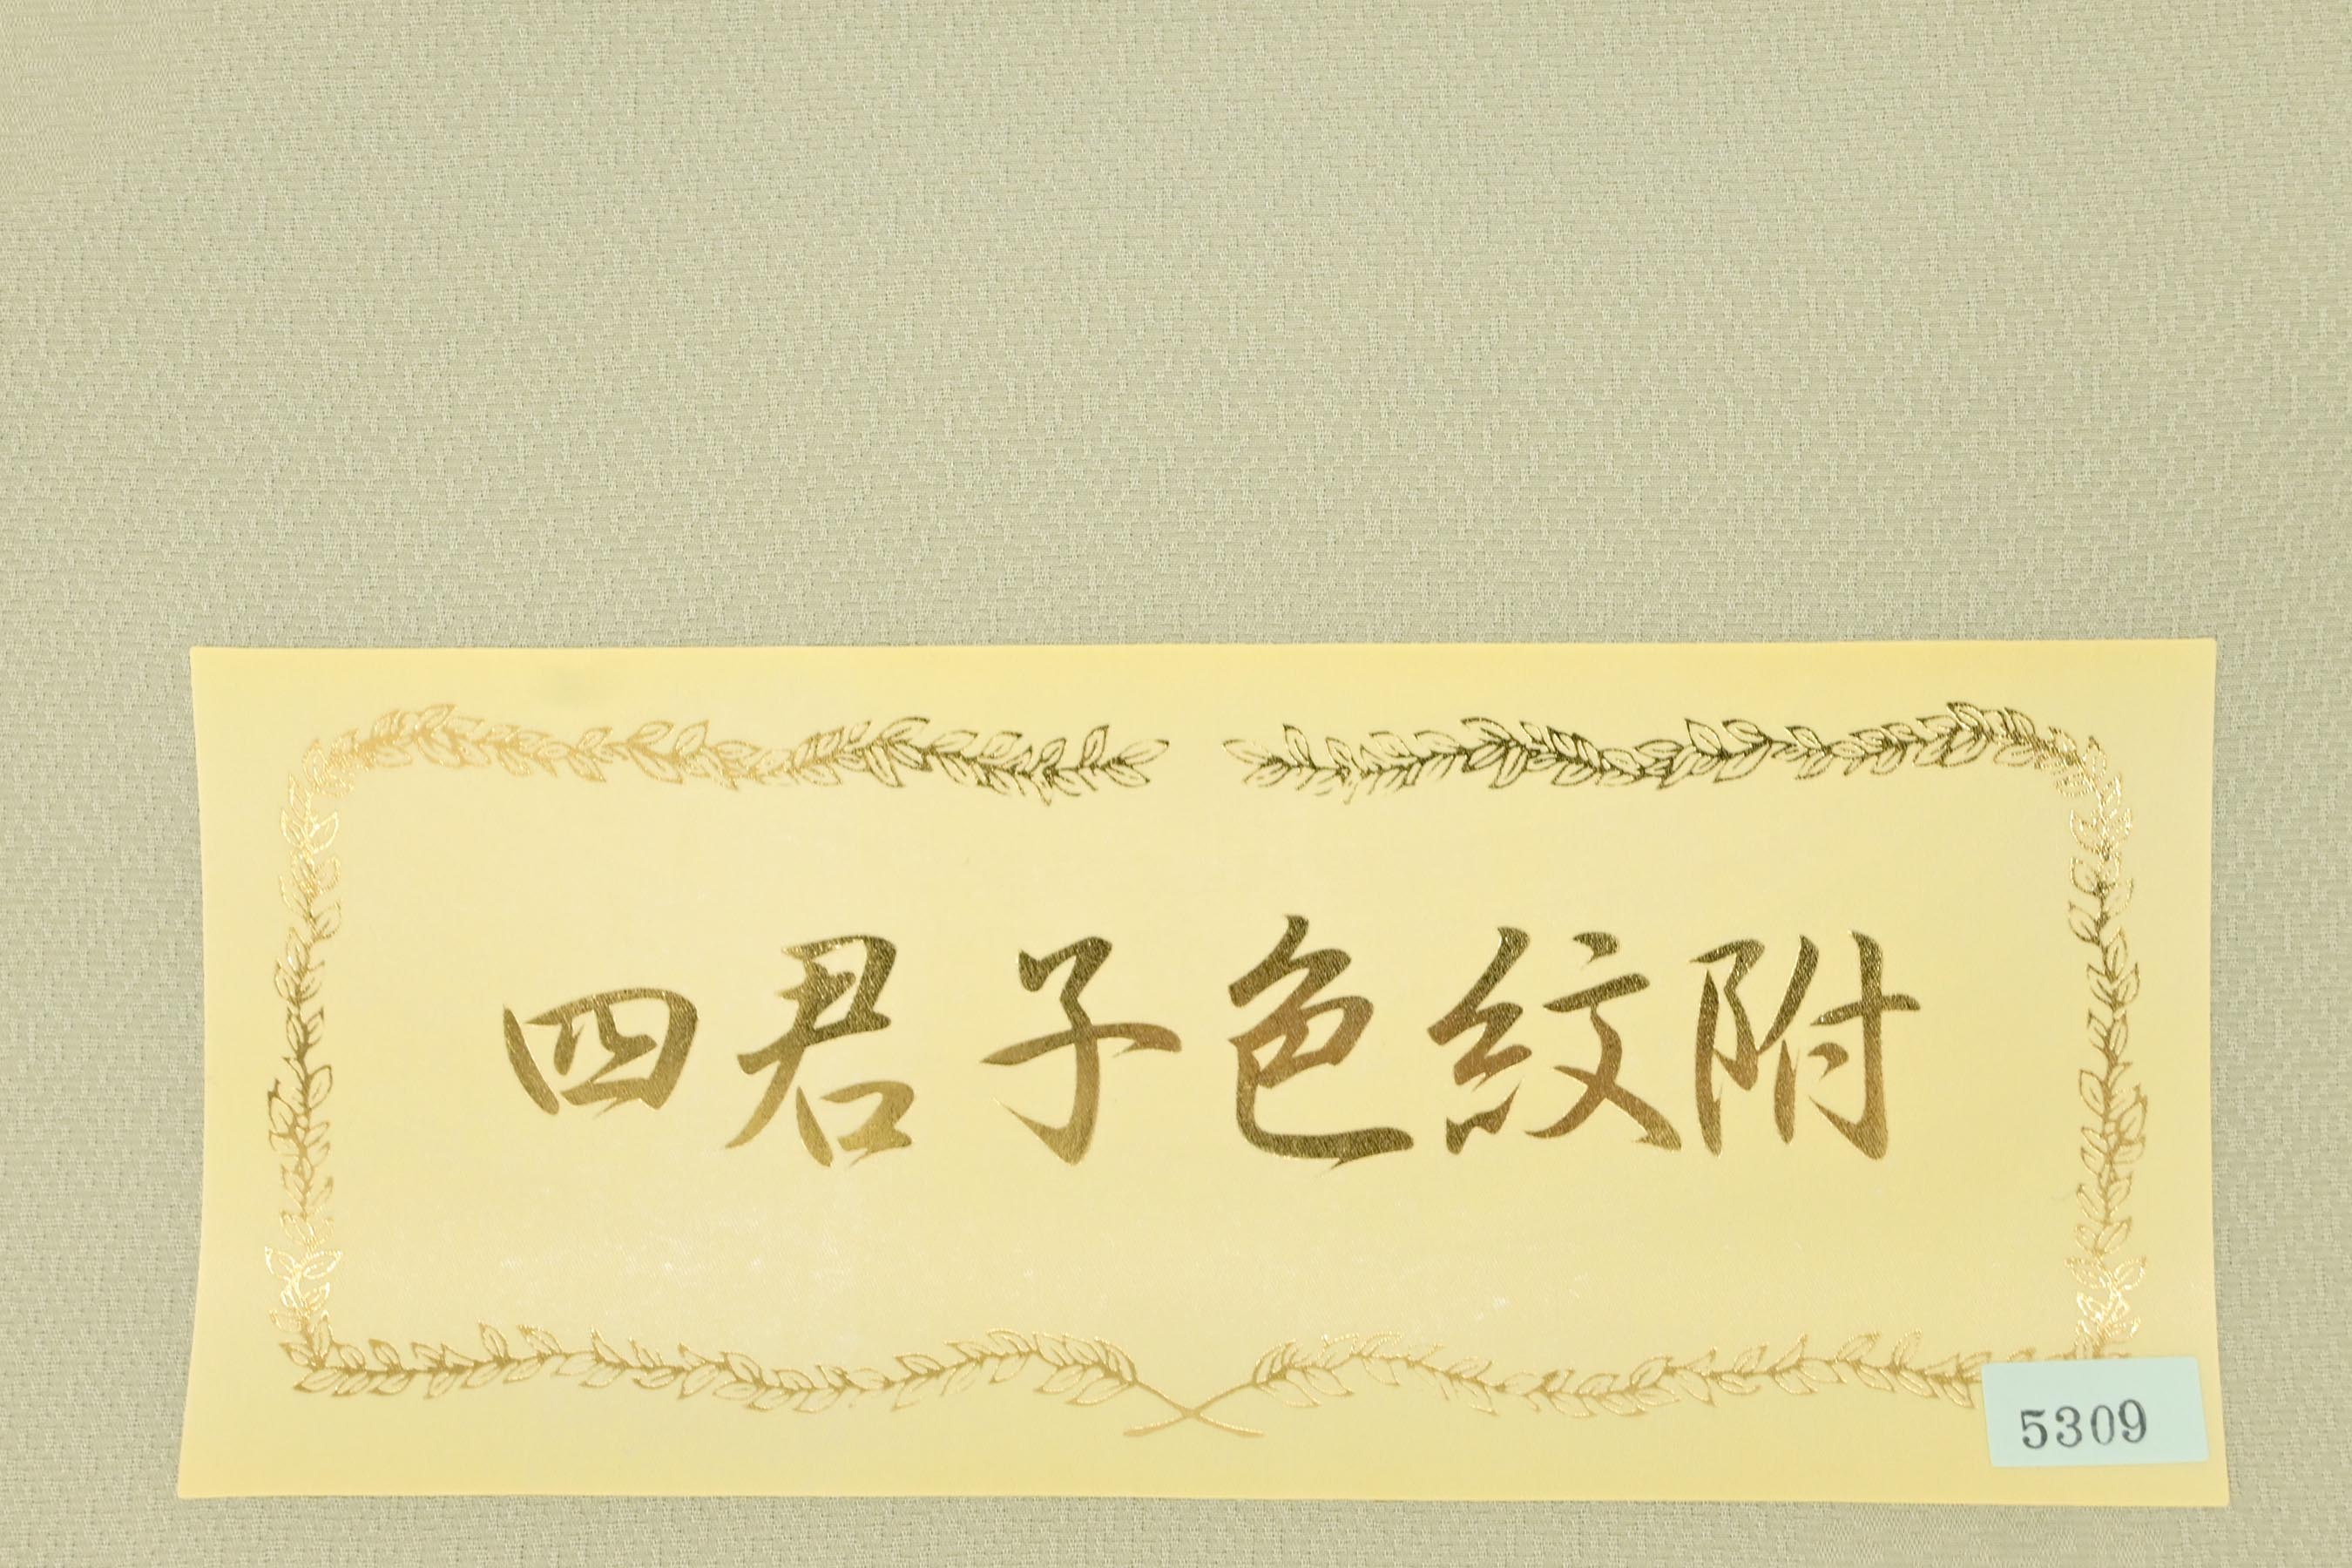 四君子色紋附
5309